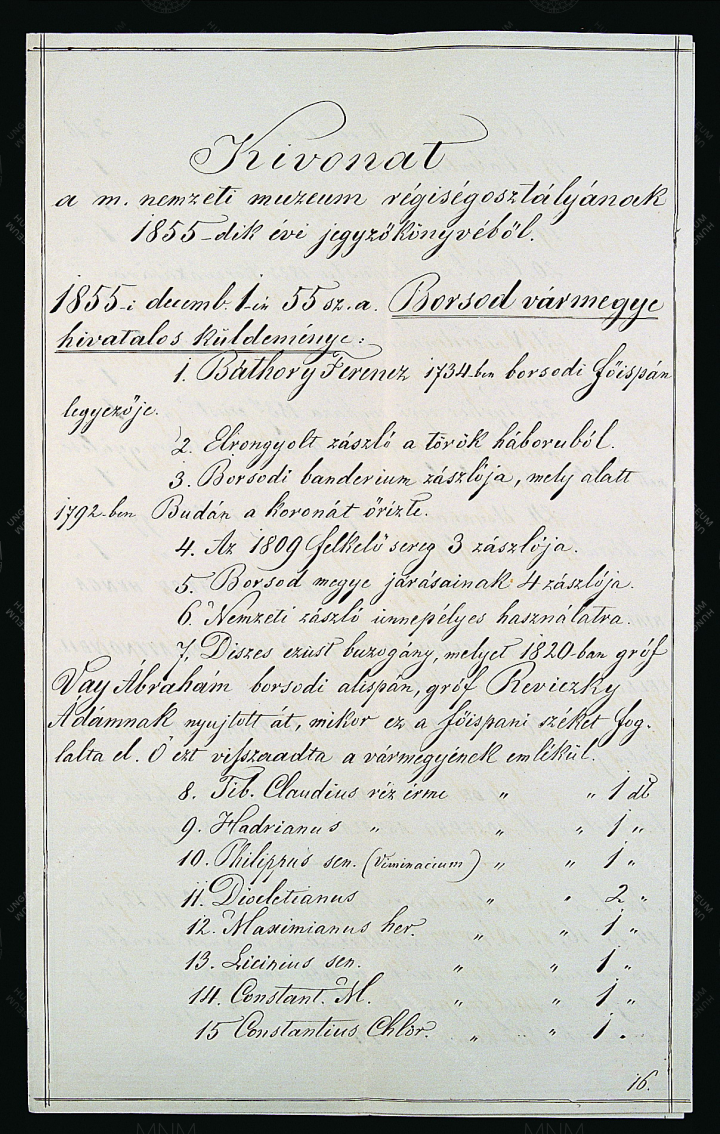 Kivonat
a m. nemzeti muzeum régiségosztályának
1855-dik évi jegyzőkönyvéből.
1855-i decemb. 1-én 55 sz. a. Borsod vármegye
hivatalos küldeménye:
1. Báthory Ferencz 1734-ben borsodi főispán
legyezője.
2. Elrongyolt zászló a török háboruból.
3. Borsodi banderium zászlója, mely alatt
1792-ben Budán a koronát őrizte.
4. Az 1809 felkelő sereg 3 zászlója.
5. Borsod megye járásainak 4 zászlója.
6. Nemzeti zászló ünnepélyes használatra.
7. Diszes ezüst buzogány, melyet 1820-ban gróf
Vay Ábrahám borsodi alispán, gróf Reviczky
Ádámnak nyujtott át, mikor ez a főispani széket fog-
lalta el. Ő ezt visszaadta a vármegyének emlékül.
8. Tib. Claudius réz érme " " 1 db
9. Hadrianus " " " 1 "
10. Philippus sen. (Viminacium) " " 1 "
11. Diocletianus " " 2 "
12. Maximianus her. " " 1 "
13. Licinius sen. " " 1 "
14. Constant. M. " " 1 "
15 Constantius Chlor. " " 1 "
16.
MNM MNM